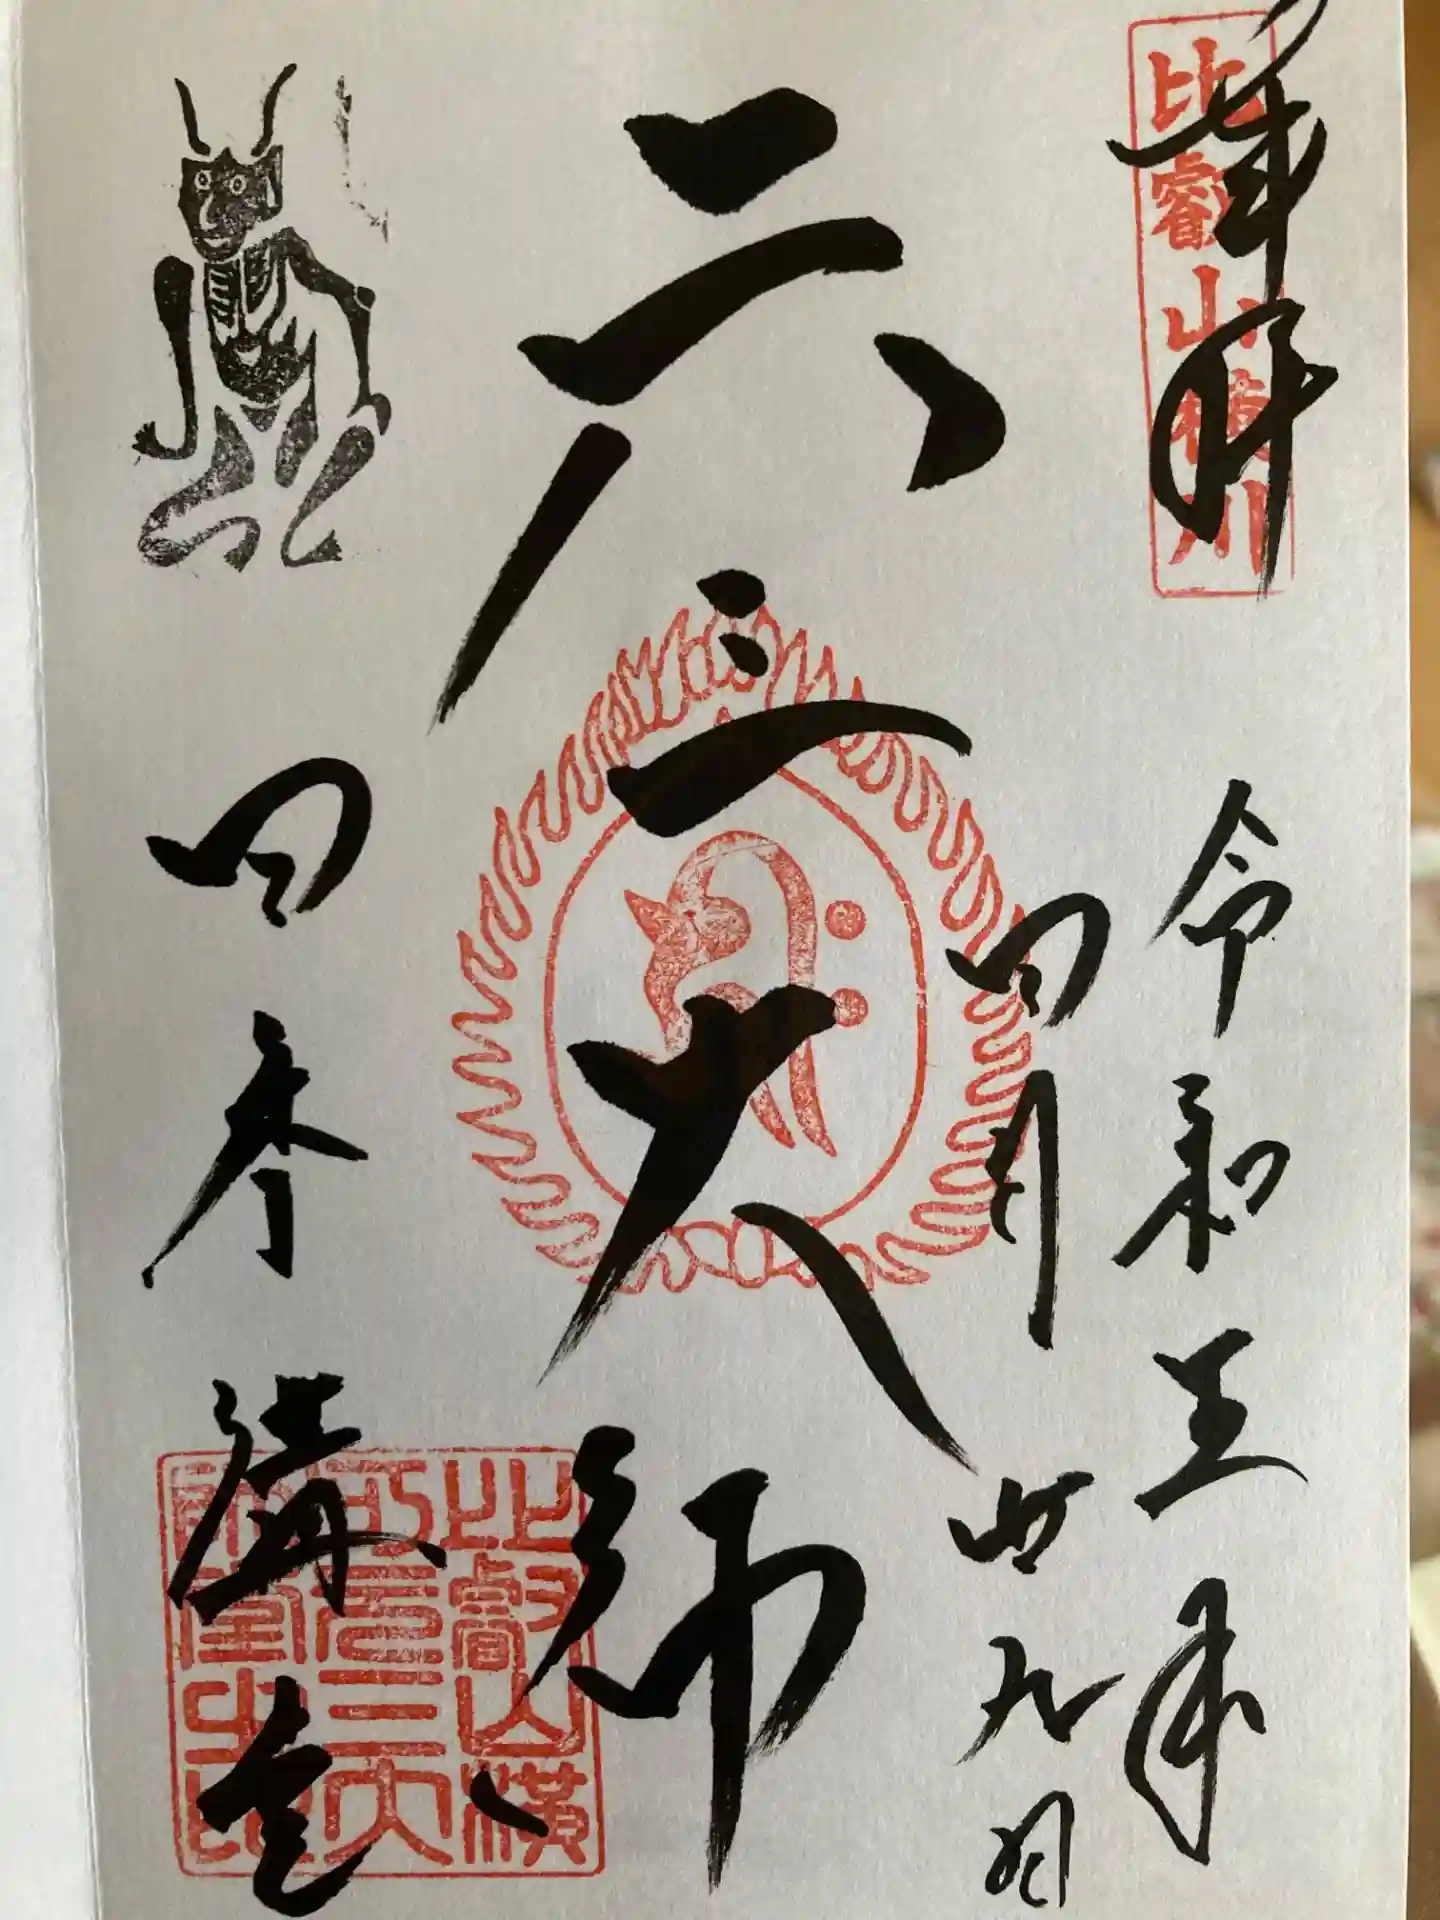 奉拝
比叡山横川
令和五年
四月廿九日
元三大師
四季講堂
比叡山横
川元三大
師堂之印